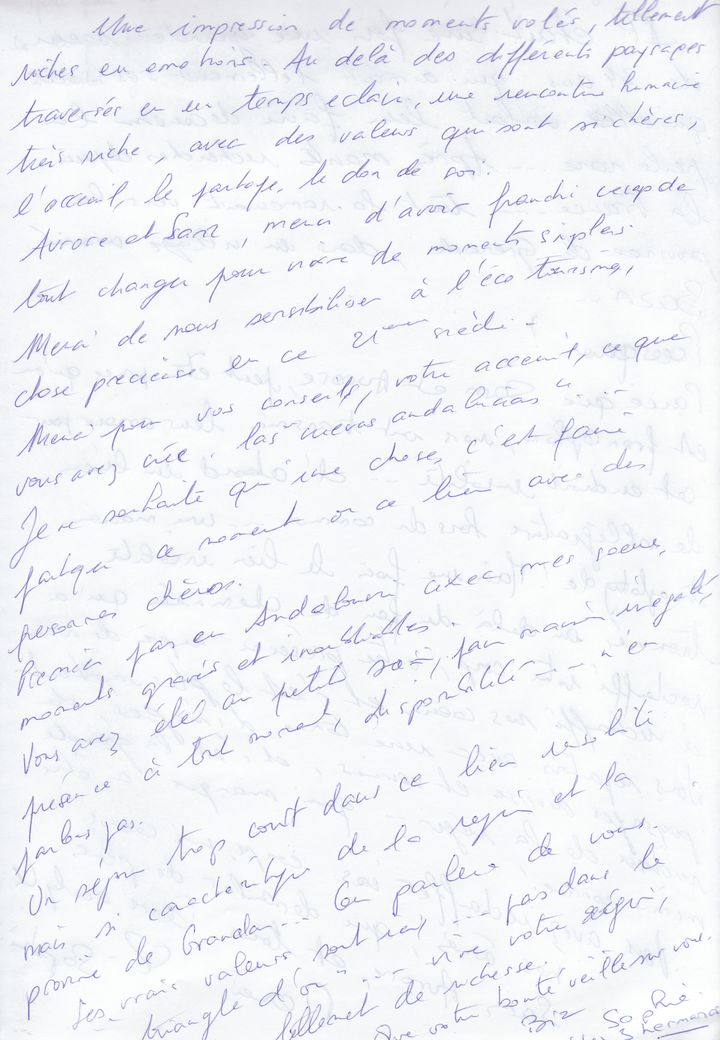 Une impression de moments volés, tellement
riches en emotions. Au delà des differents paysages
traversés en un temps eclair, une rencontre humaine
très riche, avec des valeurs qui sont si chères,
l'acceuil, le partage, le don de soi.
Aurore et merci d'avoir franchi ce cap de
tout changer pour vivre de moments simples.
Merci de nous sensibiliser à l'éco tourisme,
chose précieuse en ce 21 siècle.
Merci pour vos conseils, votre acceuil, ce que
vous avez créé : "las cuevas andalucias"
Je ne souhaite qu'une chose, c'est faire
partager ce moment ce lieu avec des
personnes chères.
Premier pas en Andalousie avec mes soeurs,
moments gravés et inoubliables.
Vous avez été au petit pain maison inégalé,
présence à tout moment, disponibilité ... n'en
parlons pas.
Un séjour trop court dans ce lieu insolite
mais si caractéristique de la région et la
province de Granada ... On parlera de vous.
Les vrais valeurs sont ... pas dans le
triangle d'or" ... vive votre
tellement de richesse.
Que votre bonté veille sur vous.
Biz Sophie